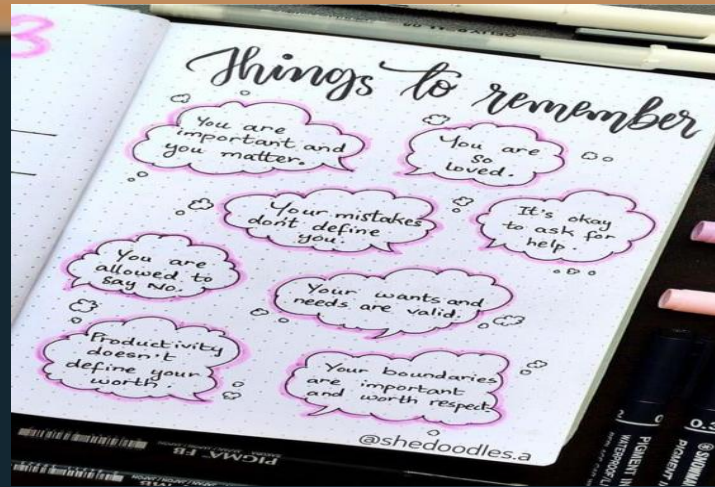 3
Things to remember
You are
important and
you matter.
You are
so
loved.
Your mistakes
don't define
you.
It's okay
to ask for
help.
You are
allowed to
say NO.
Your wants and
needs are valid.
Productivity
doesn't
define your
worth.
Your boundaries
are important
and worth respect.
@shedoodles.a
PIGMA FB
PIGMENT
WATERPROOF
PIGMENT